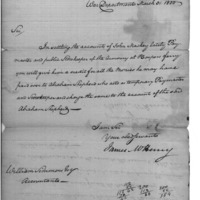 War Department March 31. 1800
Sir,
In settling the accounts of John Mackey Esq Pay
master and public Storekeeper of the Armoury at Harpers ferry
you will give him a credit for all the Monies he may have
paid over to Abraham Shepherd who acts as temporary Paymaster
and Storekeeper and charge the same to the account of the said
Abraham Shepherd
I am Sir
Your obed servant
James McHenry
William Simmons Esqr
Accountant